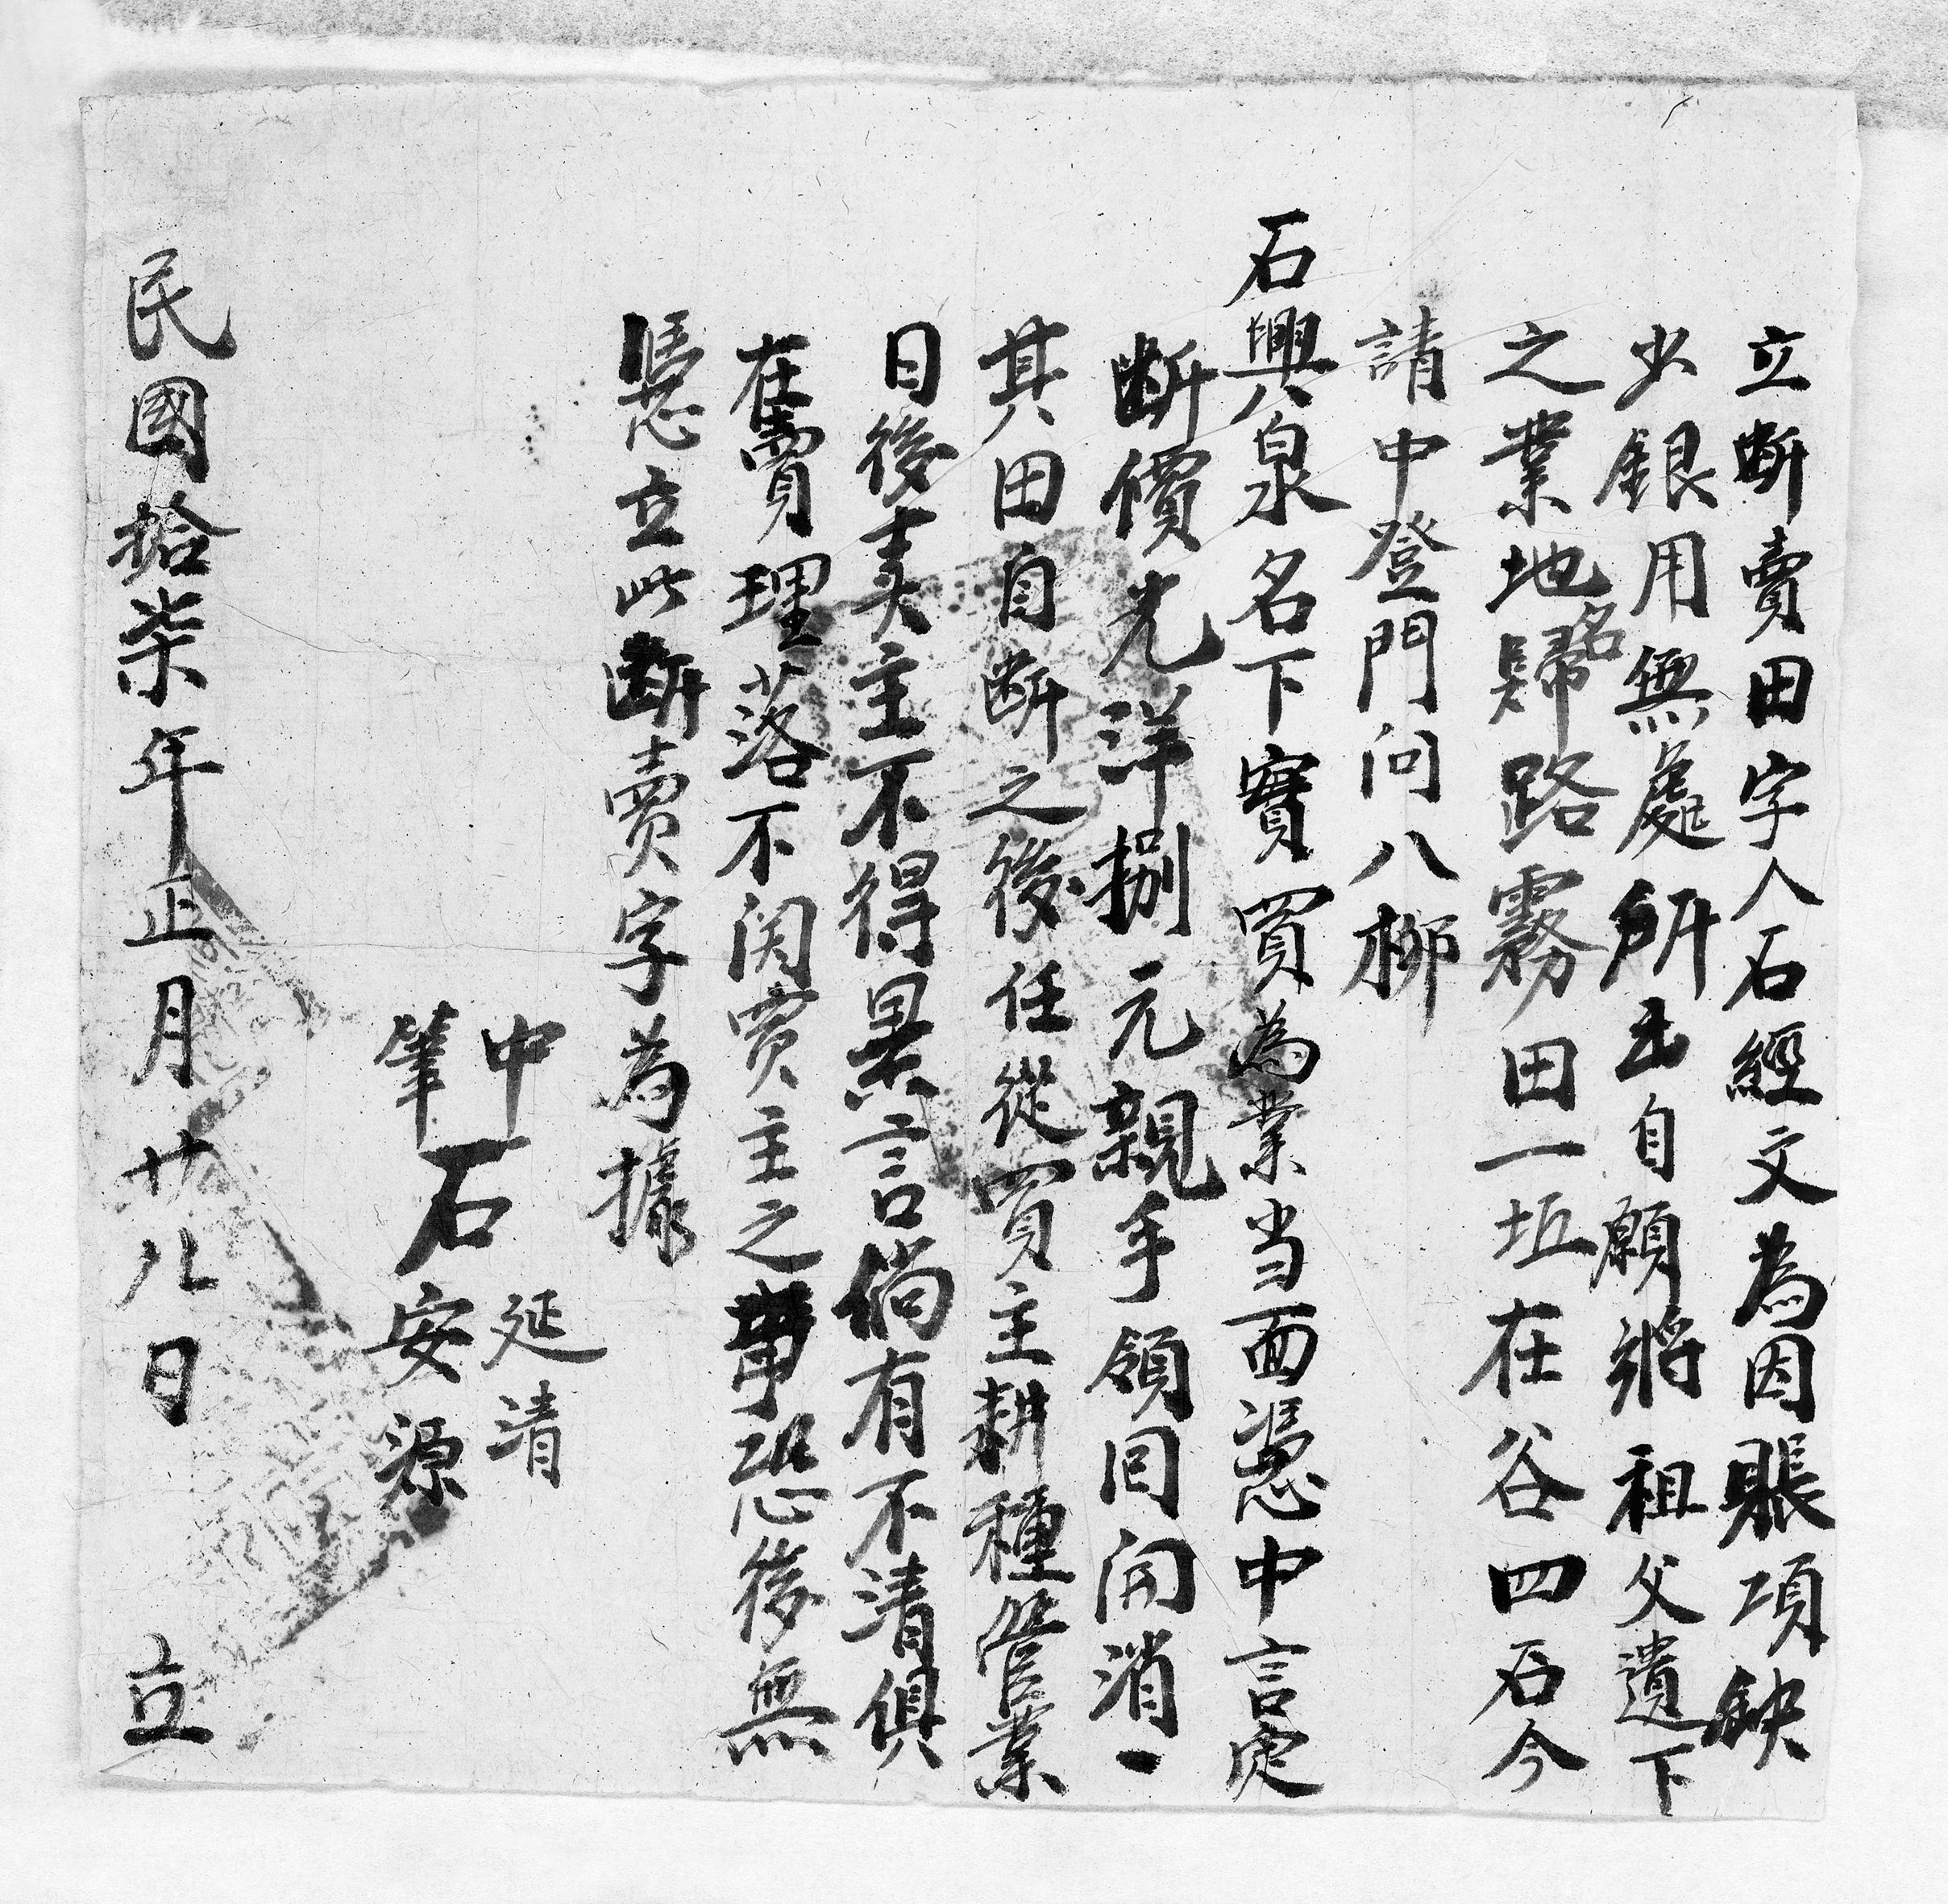 立断賣田字人石經文為因賬項缺
少銀用無處所出自願將祖父遺下
之業地名歸路霧田一坵在谷四石今
請中登門问八柳
石興泉名下實買為業当面憑中言定
断價光洋捌元親手領囘開消一
其田自断之後任從買主耕種管業
日後卖主不得異言倘有不清俱
在賣理落不関買主之事恐後無
憑立此断賣字為據
中 延清
筆 石安源
民國拾柒年正月廿八日 立